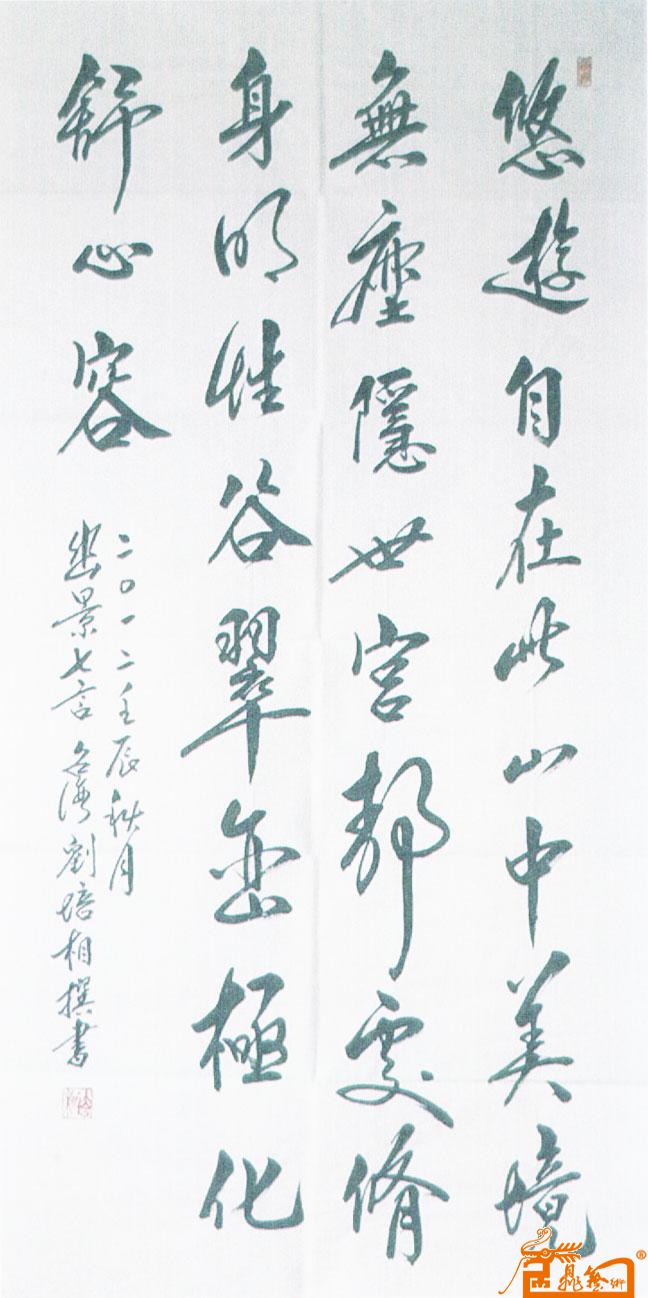 悠遊自在此山中美境
無塵隱世宮靜處脩
身明性谷翠峦極化
舒心容
二〇一二壬辰秋月
幽景七言 台湾劉培相撰書